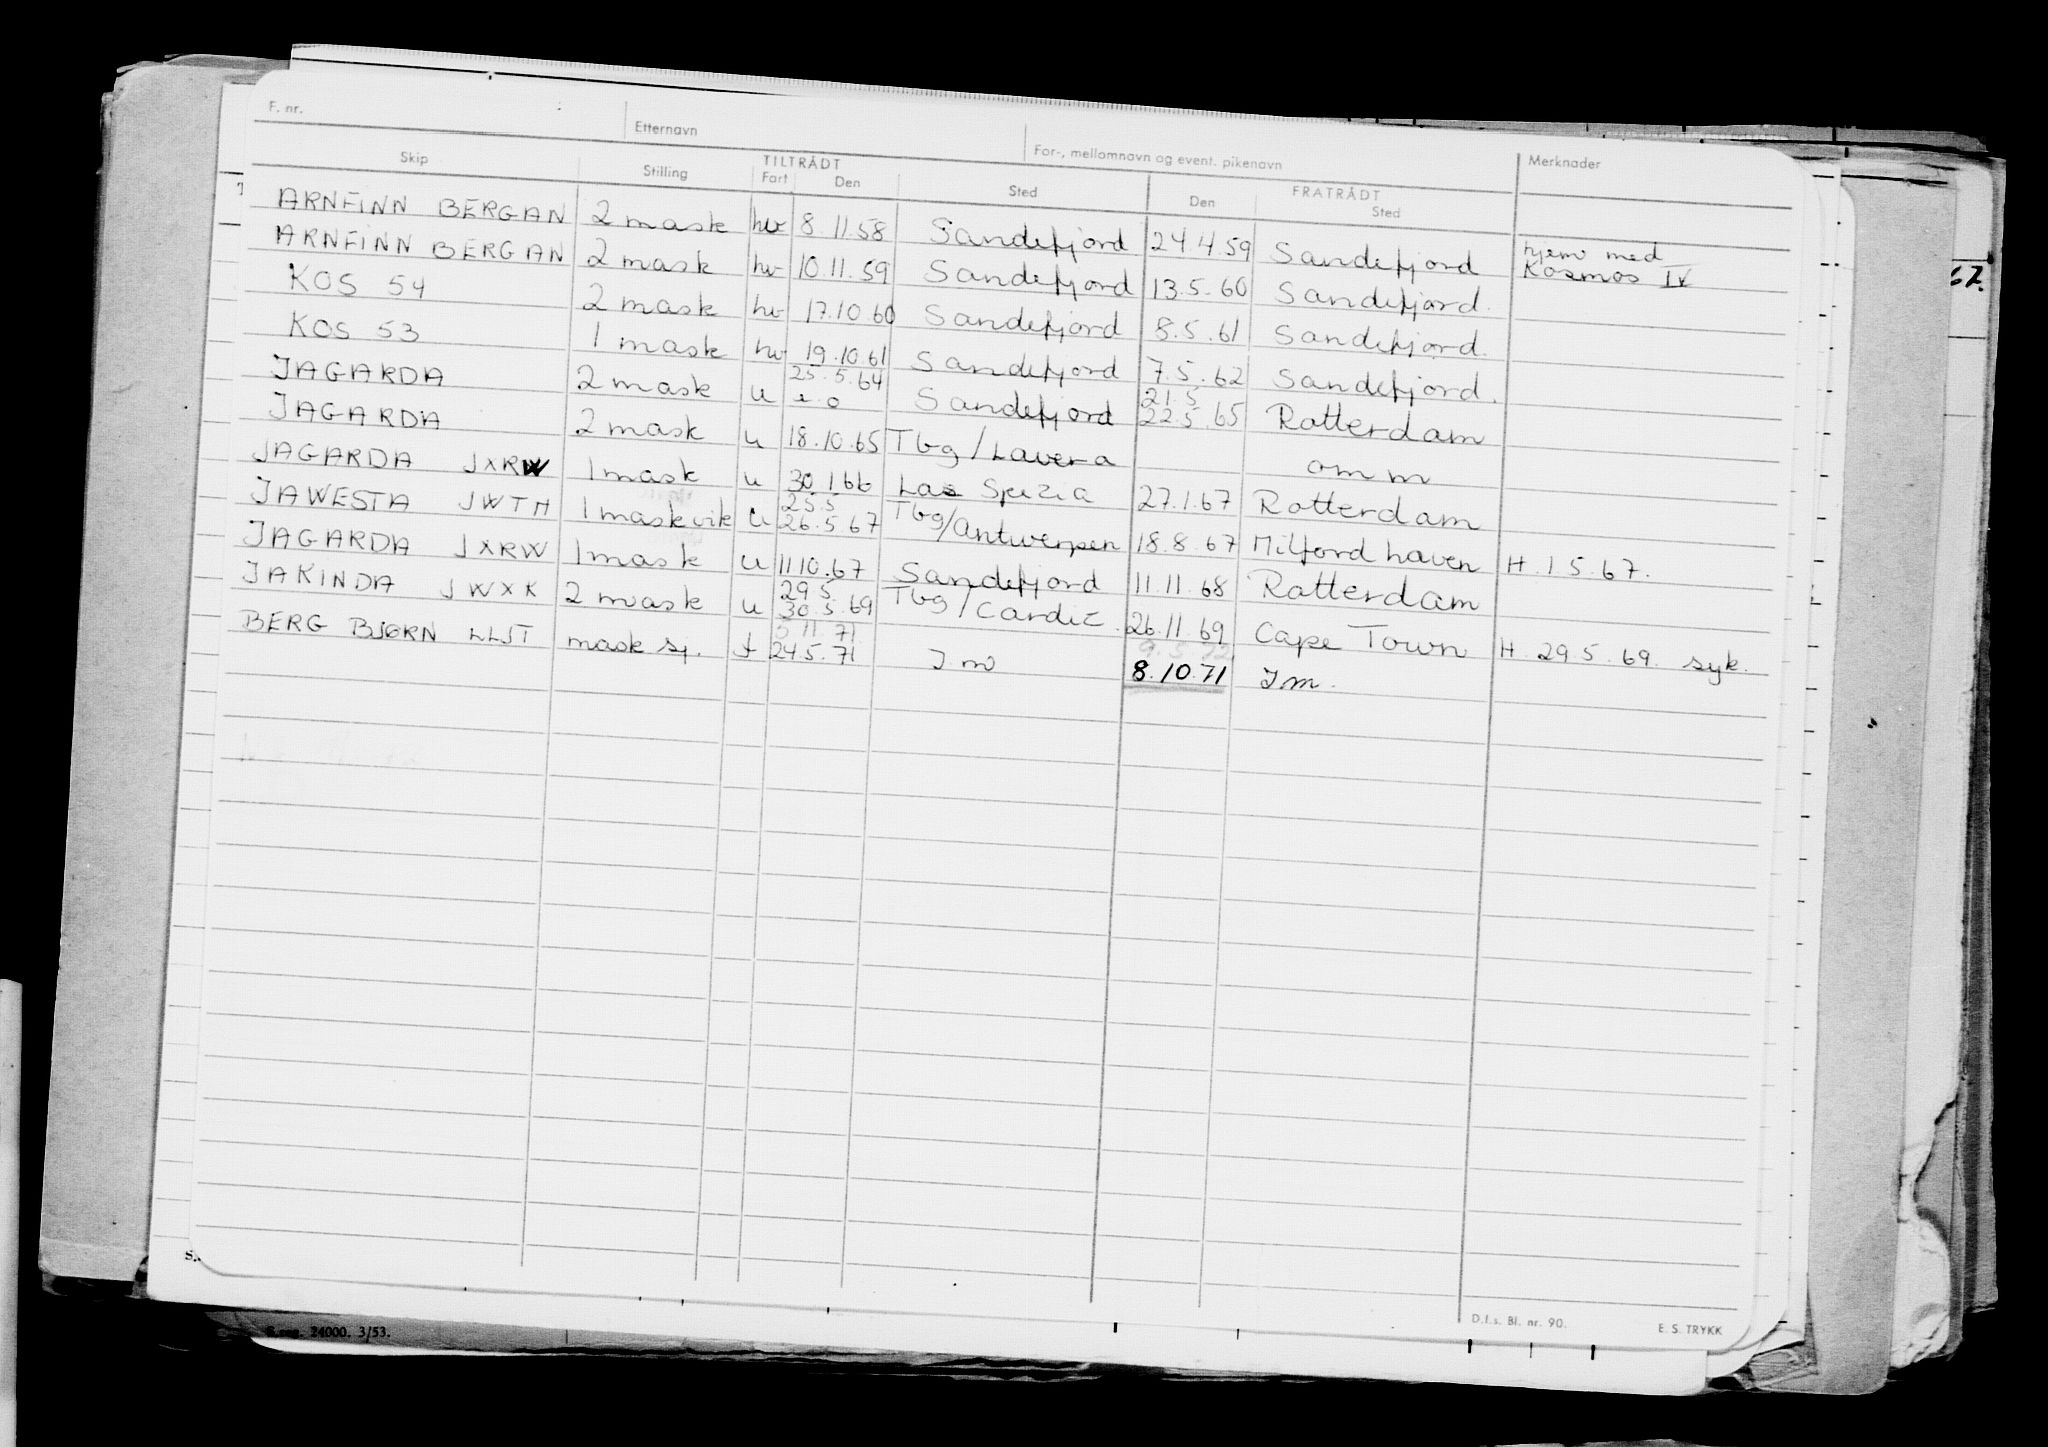 F. nr. Etternavn For-, mellomnavn og event. pikenavn Merknader
Skip Stilling TILTRÅDT Fart Den Sted FRATRÅDT Den Sted
ARNFINN BERGAN 2 mask hv 8.11.58 Sandefjord 24.4.59 Sandefjord hjem med Kosmos IV
ARNFINN BERGAN 2 mask hv 10.11.59 Sandefjord 13.5.60 Sandefjord.
KOS 54 2 mask hv 17.10.60 Sandefjord 8.5.61 Sandefjord.
KOS 53 1 mask hv 19.10.61 Sandefjord 7.5.62 Sandefjord.
JAGARDA 2 mask u 25.5.64 Sandefjord 21.5 22.5.65 Rotterdam
JAGARDA 2 mask u 18.10.65 Tbg/Lavera omm
JAGARDA JXRW 1 mask u 30 1 66 Las Spezia 27.1.67 Rotterdam
JAWESTA JWTH 1 mask vik u 25.5 26.5.67 Tbg/Antwerpen 18.8.67 Milford haven H. 1.5.67.
JAGARDA JXRW 1 mask u 11 10.67 Sandefjord 11.11.68 Rotterdam
JAKINDA JWXK 2 mask u 29.5. 30.5.69 Tbg/Cardif. 26.11.69 Cape Town H. 29.5.69. syk.
BERG BJØRN LLJT mask sj. t 5.11.71 24.5.71 Jm 9.5.72 8.10.71 Jm.
67.
S.
24000. 3/53.
D.f.s. Bl. nr. 90. E. S. TRYKK